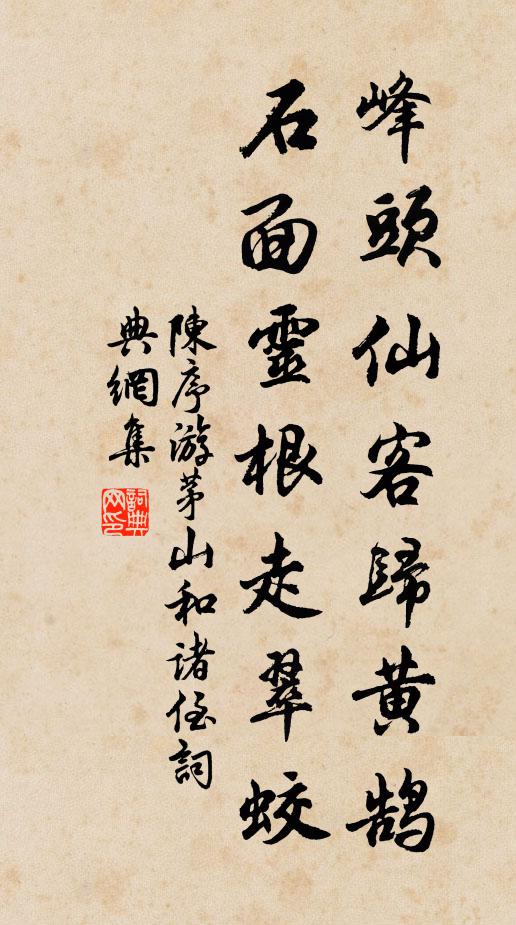 峰頭仙客歸黃鵠
石面靈根走翠蛟
陳序游茅山和諸侄詞
典網集
詞典網印